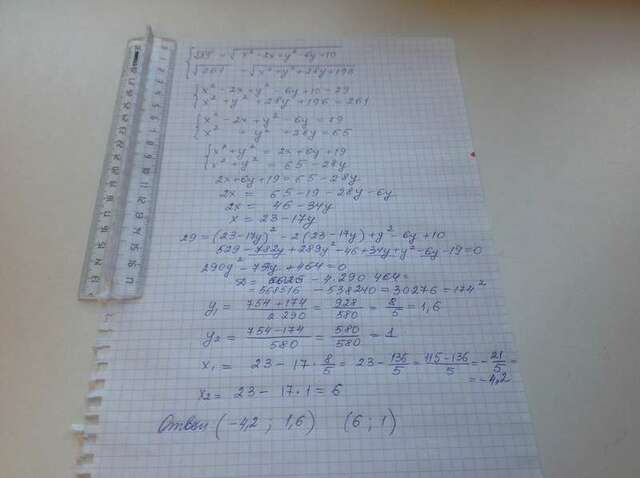 {√29 = √x² - 2x + y² - 6y + 10
{√261 = √x² + y² + 28y + 196
{x² - 2x + y² - 6y + 10 = 29
{x² + y² + 28y + 196 = 261
{x² - 2x + y² - 6y = 19
{x² + y² + 28y = 65
{x² + y² = 2x + 6y + 19
{x² + y² = 65 - 28y
2x + 6y + 19 = 65 - 28y
2x = 65 - 19 - 28y - 6y
2x = 46 - 34y
x = 23 - 17y
29 = (23 - 17y)² - 2(23 - 17y) + y² - 6y + 10
529 - 782y + 289y² - 46 + 34y + y² - 6y - 19 = 0
290y² - 754y + 464 = 0
- 4·290·464 =
= 568516 - 538240 = 30276 = 174²
y₁ = (754 + 174)/(2·290) = 928/580 = 8/5 = 1,6
y₂ = (754 - 174)/580 = 580/580 = 1
x₁ = 23 - 17 · 8/5 = 23 - 136/5 = (115 - 136)/5 = -21/5 =
= -4,2
x₂ = 23 - 17·1 = 6
Ответ (-4,2 ; 1,6) (6 ; 1)